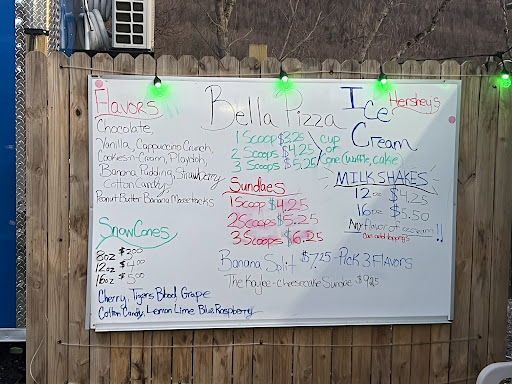 Flavors
Chocolate
Vanilla, Cappuccino Crunch,
Cookies-n-Cream, Playdoh,
Banana Pudding, Strawberry
Cotton Candy
Peanut Butter Banana Moosetracks
SnowCones
8oz $3.00
12oz $4.00
16oz $5.00
Cherry, Tigers Blood Grape
Cotton Candy, Lemon Lime Blue Raspberry
Bella Pizza
1 Scoop $3.25
2 Scoops $4.25
3 Scoops $5.25
cup
or
Cone (waffle, cake
Sundaes
1 Scoop $4.25
2 Scoops $5.25
3 Scoops $6.25
Banana Split $7.25 - Pick 3 Flavors
The Kaylee - Cheesecake Sundae $9.25
Ice
Cream
Hershey's
MILKSHAKES
12oz $4.25
16oz $5.50
Any flavor of icecream!!